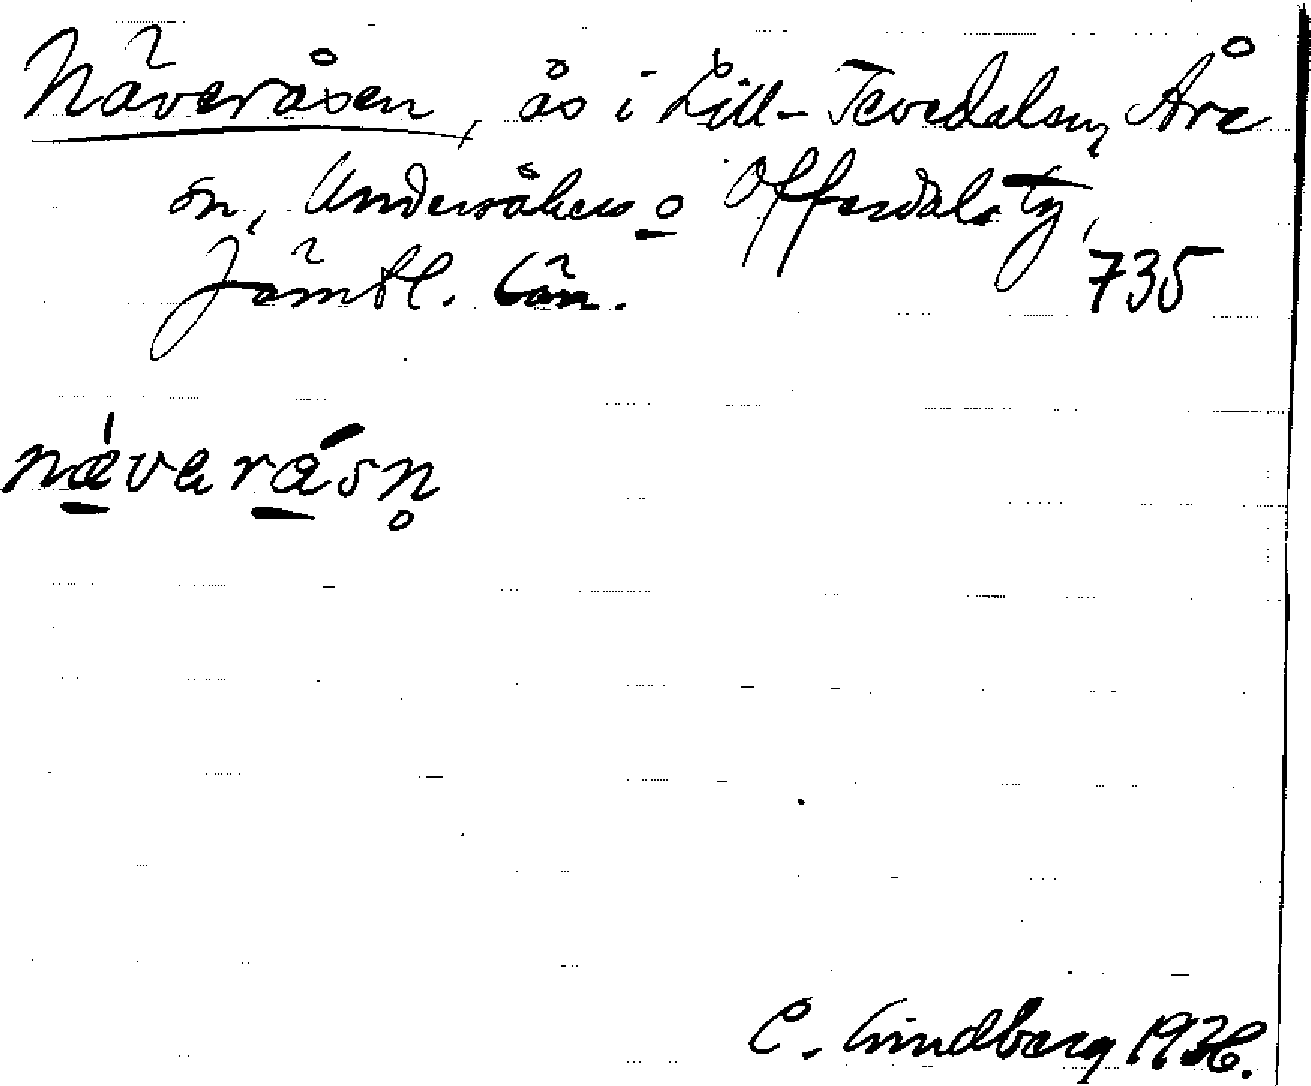 Näveråsen, ås i Lill-Tevedalen, Åre
sn, Undersåkers o Offerdals tg,
Jämtl. län. 735
nǽvaråsn̥
C. Lindberg 1936.